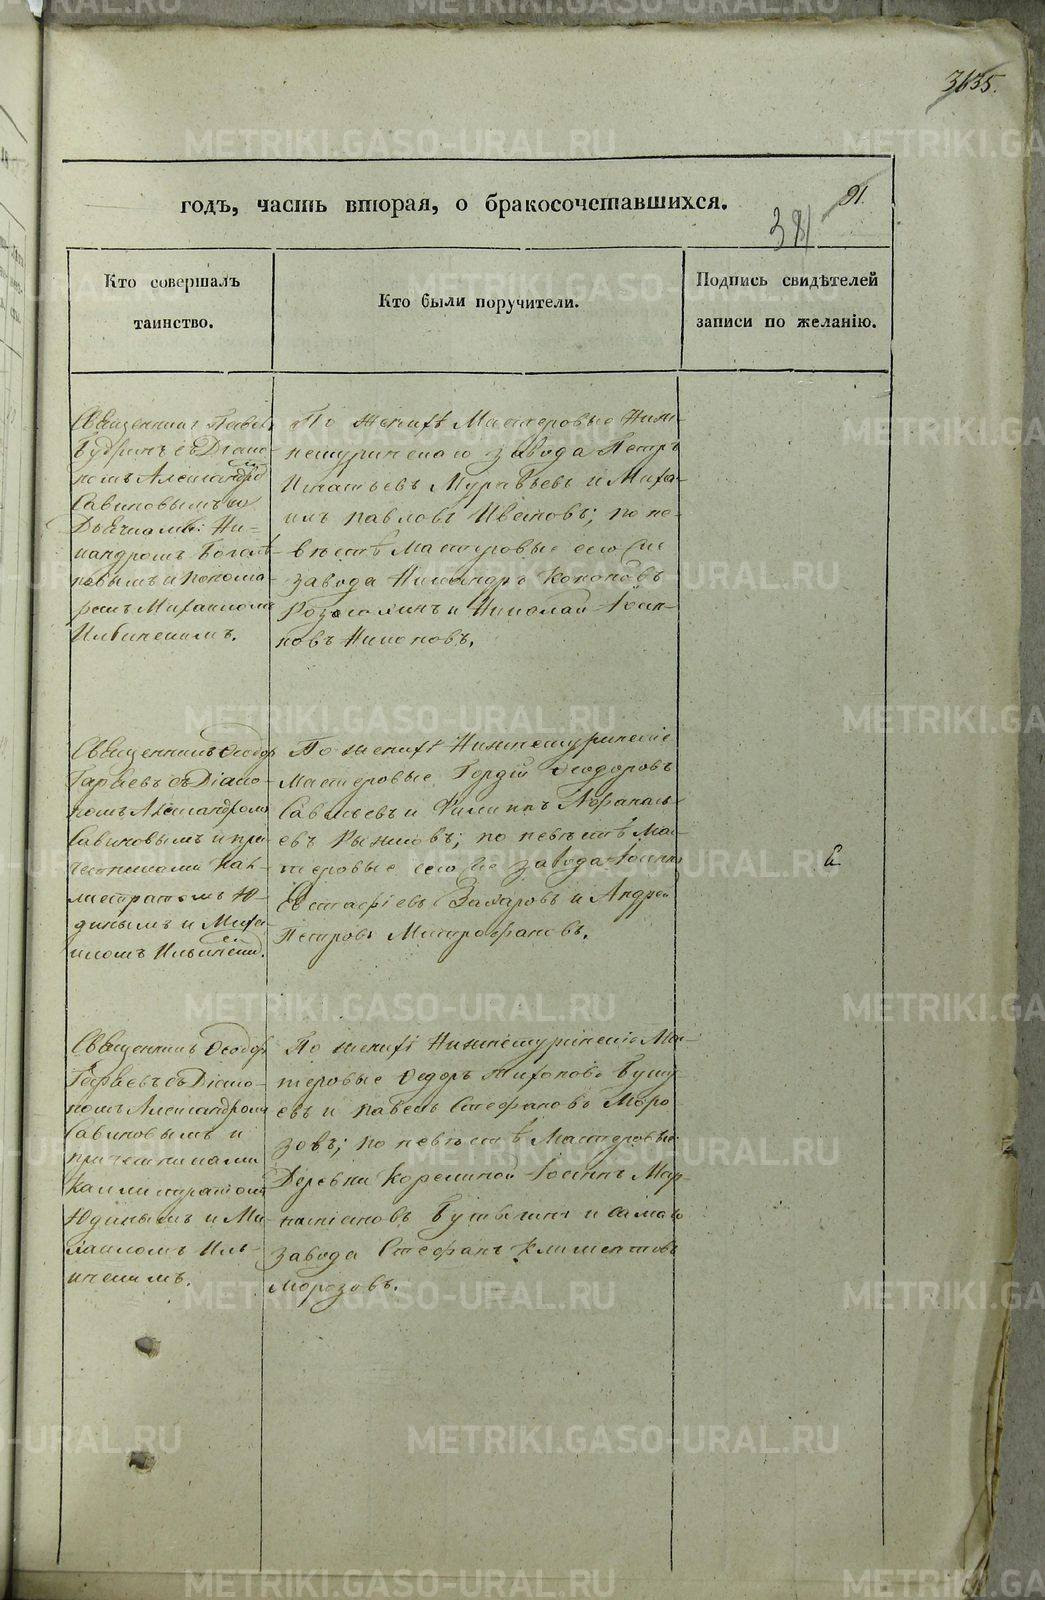 3635.
годъ, часть вторая, о бракосочетавшихся.
91
381
Кто совершалъ
таинство.
Кто были поручители.
Подпись свидѣтелей
записи по желанію.
Священникъ Павелъ
Кудринъ съ Діако-
номъ Александро
Савиновымъ и
Дьячками: Ни-
кандромъ
и понома-
ремъ Михаиломъ
Ильинскимъ.
По женихѣ Мастеровые Ниж-
нетуринскаго завода Петръ
Игнатьевъ Муравьевъ и Миха-
илъ Павловъ Ивановъ; по не-
вѣстѣ Мастеровые сего же
завода Никандръ Кононовъ
и Николай Іоси-
повъ Никоновъ.
Священникъ Ѳеодоръ
съ Діако-
номъ Александромъ
Савиновымъ и при-
четниками Кал-
листратомъ Ю-
динымъ и Миха-
иломъ Ильинскимъ.
По женихѣ Нижнетуринскіе
Мастеровые Гордій Ѳеодоровъ
Савельевъ и Филиппъ Аѳанась-
евъ Рыжковъ; по невѣстѣ Ма-
стеровые сего же завода Іосифъ
Евстафіевъ Захаровъ и Андрей
Петровъ Митрофановъ.
Священникъ Ѳеодоръ
съ Діако-
номъ Александромъ
Савиновымъ и
причетниками
Каллистратомъ
Юдинымъ и Ми-
хаиломъ Иль-
инскимъ.
По женихѣ Нижнетуринскіе Мас-
теровые Ѳедоръ Тихоновъ Бушу-
евъ и Павелъ Стефановъ Моро
зовъ; по невѣстѣ Мастеровые
Деревни Корелиной Іоаннъ
и самаго
завода Стефанъ Климентовъ
Морозовъ.
METRIKI.GASO-URAL.RU